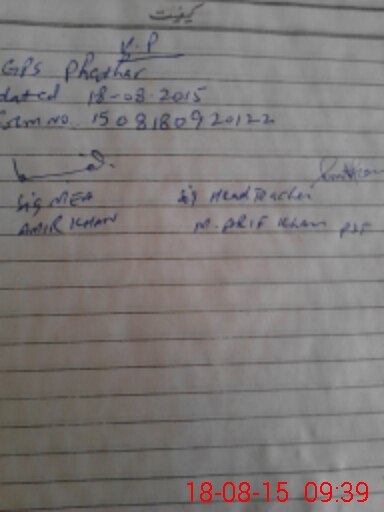 کیفیت
K.P
GPS Phathar
dated 18-08-2015
Form no. 1508180920122
Sig MEA Sig Head Teacher
AMIR KHAN M. ARIF Khan PSF
18-08-15 09:39